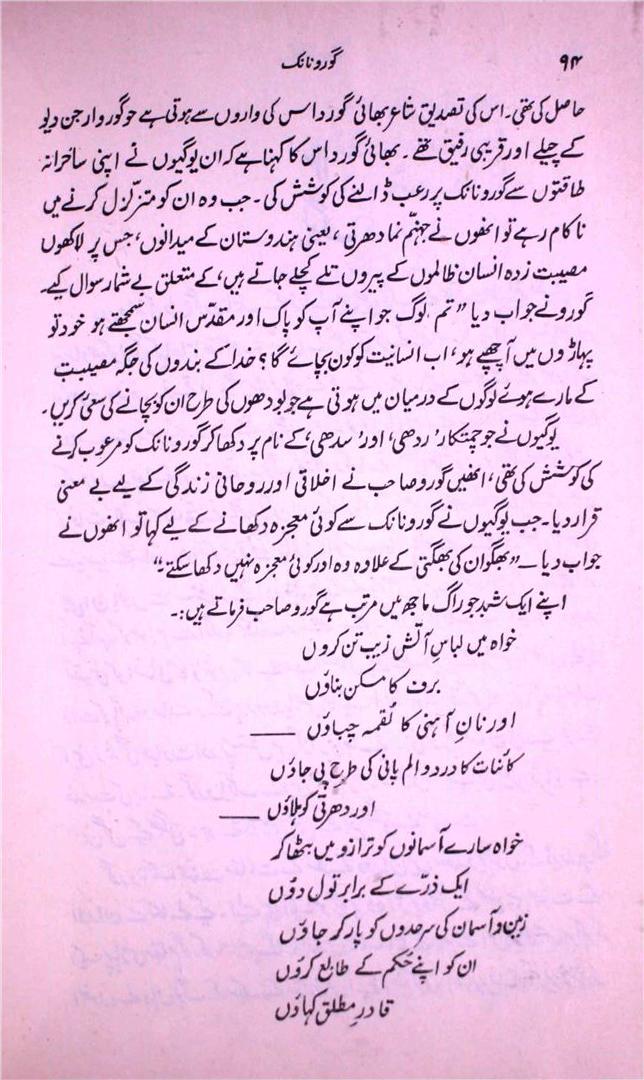 ۹۴
گورونانک
حاصل کی تھی۔ اس کی تصدیق شاعر بھائی گورداس کی واروں سے ہوتی ہے جو گورو ارجن دیو
کے چیلے اور قریبی رفیق تھے۔ بھائی گورداس کا کہنا ہے کہ ان یوگیوں نے اپنی ساحرانہ
طاقتوں سے گورونانک پر رعب ڈالنے کی کوشش کی۔ جب وہ ان کو متزلزل کرنے میں
ناکام رہے تو انھوں نے جہنّم نما دھرتی، یعنی ہندوستان کے میدانوں، جس پر لاکھوں
مصیبت زدہ انسان ظالموں کے پیروں تلے کچلے جاتے ہیں، کے متعلق بے شمار سوال کیے۔
گورو نے جواب دیا ”تم لوگ جو اپنے آپ کو پاک اور مقدّس انسان سمجھتے ہو خود تو
پہاڑوں میں آچھپے ہو، اب انسانیت کو کون بچائے گا؟ خدا کے بندوں کی جگہ مصیبت
کے مارے ہوئے لوگوں کے درمیان میں ہوتی ہے جو لودھوں کی طرح ان کو بچانے کی سعیٔ کریں۔
یوگیوں نے جو چمتکار ’ردھی‘، اور ’سدھی‘، کے نام پر دکھا کر گورونانک کو مرعوب کرنے
کی کوشش کی تھی، انھیں گورو صاحب نے اخلاقی اور روحانی زندگی کے لیے بے معنی
قرار دیا۔ جب یوگیوں نے گورونانک سے کوئی معجزہ دکھانے کے لیے کہا تو انھوں نے
جواب دیا — ”بھگوان کی بھگتی کے علاوہ وہ اور کوئی معجزہ نہیں دکھا سکتے۔“
اپنے ایک شبد جو راگ ماجھ میں مرتب ہے گورو صاحب فرماتے ہیں:۔
خواہ میں لباسِ آتش زیب تن کروں
برف کا مسکن بناؤں
اور نانِ آہنی کا لُقمہ چباؤں ——
کائنات کا درد و الم پانی کی طرح پی جاؤں
اور دھرتی کو ہلاؤں ——
خواہ سارے آسمانوں کو ترازو میں بٹھا کر
ایک ذرّے کے برابر تول دوں
زمین و آسمان کی سرحدوں کو پار کر جاؤں
ان کو اپنے حُکم کے طابع کروں
قادرِ مطلق کہاؤں